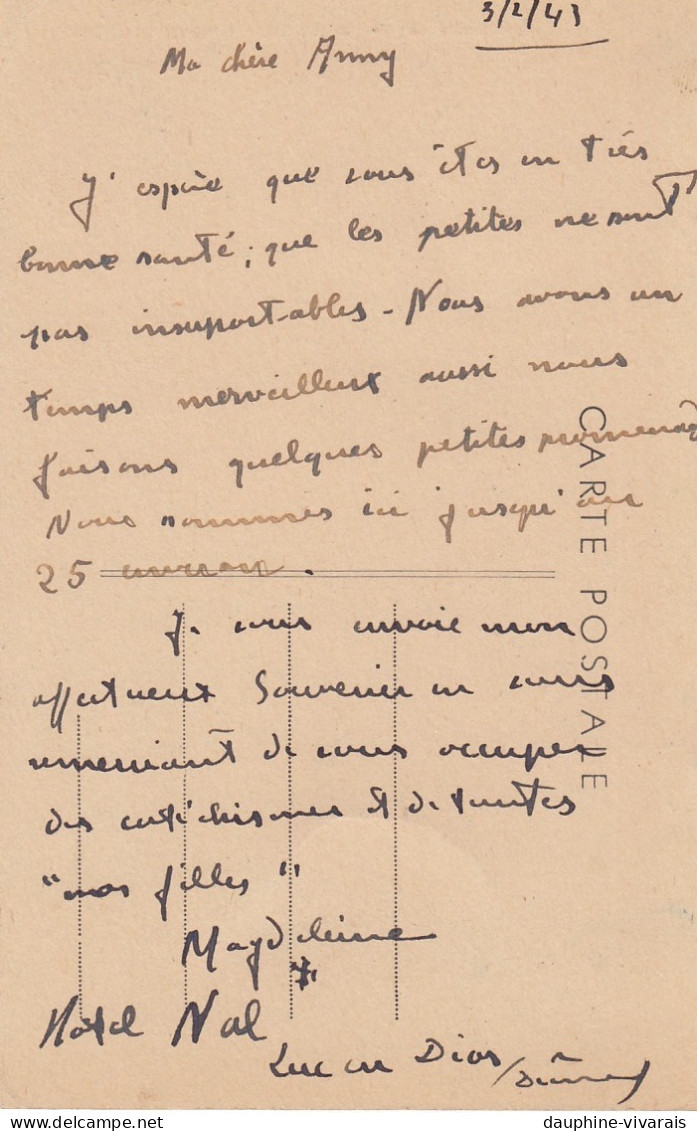 3/2/43
Ma chère Anny
J'espère que vous êtes en très
bonne santé ; que les petites ne sont
pas insuportables - Nous avons un
temps merveilleux aussi nous
faisons quelques petites promenad
Nous sommes ici jusqu'au
25 environ .
Je vous envoie mon
affectueux souvenir en vous
remerciant de vous occuper
des catéchismes et de toutes
"nos filles"
Magdeleine
Hôtel Nal
Luc en Diois /Drôme/
CARTE POSTALE
dauphine-vivarais